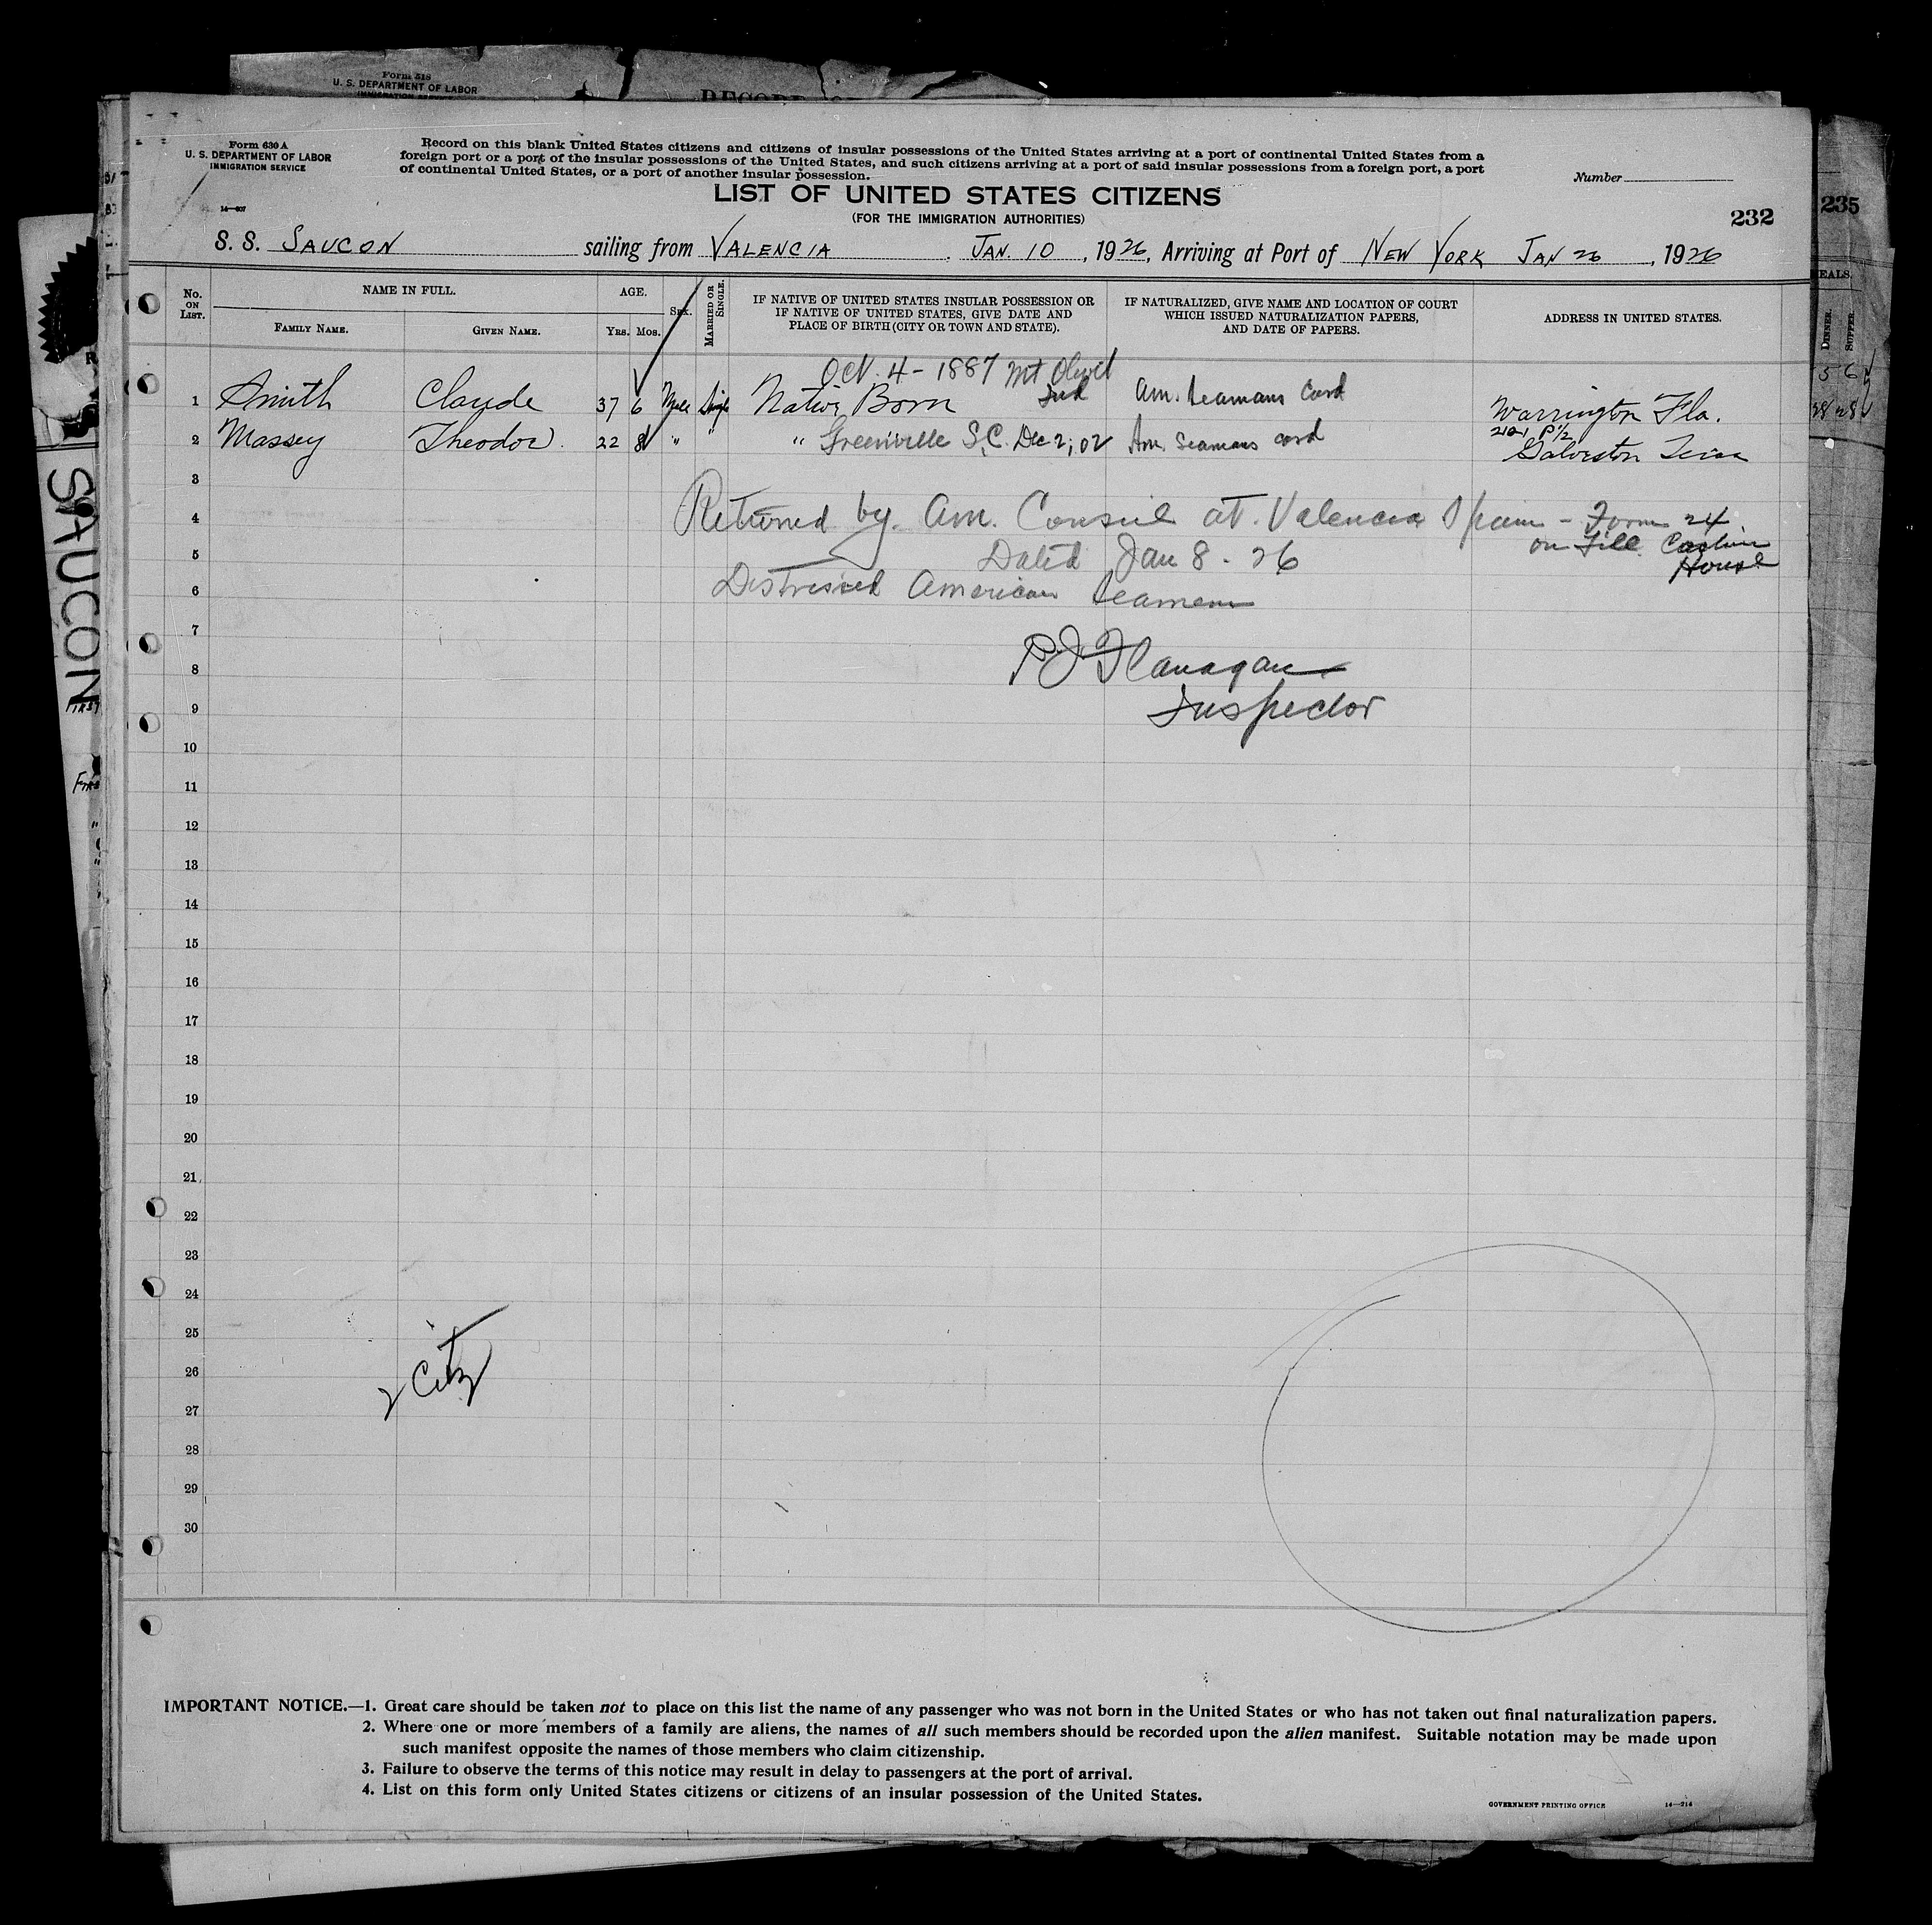 Form 518
U. S. DEPARTMENT OF LABOR
IMMIGRATION SERVICE
RECORD
Form 630 A
U. S. DEPARTMENT OF LABOR
IMMIGRATION SERVICE
14—607
Record on this blank United States citizens and citizens of insular possessions of the United States arriving at a port of continental United States from a
foreign port or a port of the insular possessions of the United States, and such citizens arriving at a port of said insular possessions from a foreign port, a port
of continental United States, or a port of another insular possession.
Number
LIST OF UNITED STATES CITIZENS
(FOR THE IMMIGRATION AUTHORITIES)
232
235
S. S. SAUCON sailing from VALENCIA . JAN. 10 , 1926, Arriving at Port of NEW YORK JAN 26 , 1926
No. ON LIST.
NAME IN FULL.
FAMILY NAME.
GIVEN NAME.
AGE.
YRS. MOS.
SEX.
MARRIED OR SINGLE.
IF NATIVE OF UNITED STATES INSULAR POSSESSION OR
IF NATIVE OF UNITED STATES, GIVE DATE AND
PLACE OF BIRTH (CITY OR TOWN AND STATE).
IF NATURALIZED, GIVE NAME AND LOCATION OF COURT
WHICH ISSUED NATURALIZATION PAPERS,
AND DATE OF PAPERS.
ADDRESS IN UNITED STATES.
EALS.
DINNER.
SUPPER.
Oct. 4 - 1887 Mt Olivet
1 Smith Claude 37 6 Male Single Native Born Ind Am. Seamans Card Warrington Fla.
2121 P 1/2
2 Massey Theodor. 22 8 " " " Greenville S.C. Dec 2, 02 Am. Seamans card Galveston Texas
3
4 Returned by Am. Consul at Valencia Spain - Form 24
on File Custom
House
5 Dated Jan 8 - 26
6 Distressed American Seamen
7
8 P J Flanagan
9 Inspector
10
11
12
13
14
15
16
17
18
19
20
21
22
23
24
25
26
2 Citz
27
28
29
30
SAUCON
IMPORTANT NOTICE.—1. Great care should be taken not to place on this list the name of any passenger who was not born in the United States or who has not taken out final naturalization papers.
2. Where one or more members of a family are aliens, the names of all such members should be recorded upon the alien manifest. Suitable notation may be made upon
such manifest opposite the names of those members who claim citizenship.
3. Failure to observe the terms of this notice may result in delay to passengers at the port of arrival.
4. List on this form only United States citizens or citizens of an insular possession of the United States.
GOVERNMENT PRINTING OFFICE 14—214